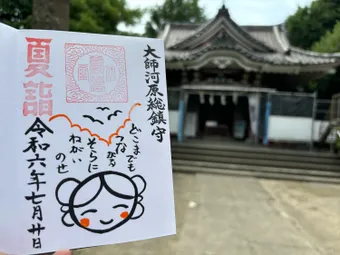 大師河原総鎮守
夏詣
どこまでも
つながる
そらに
ねがい
のせ
令和六年七月廿日